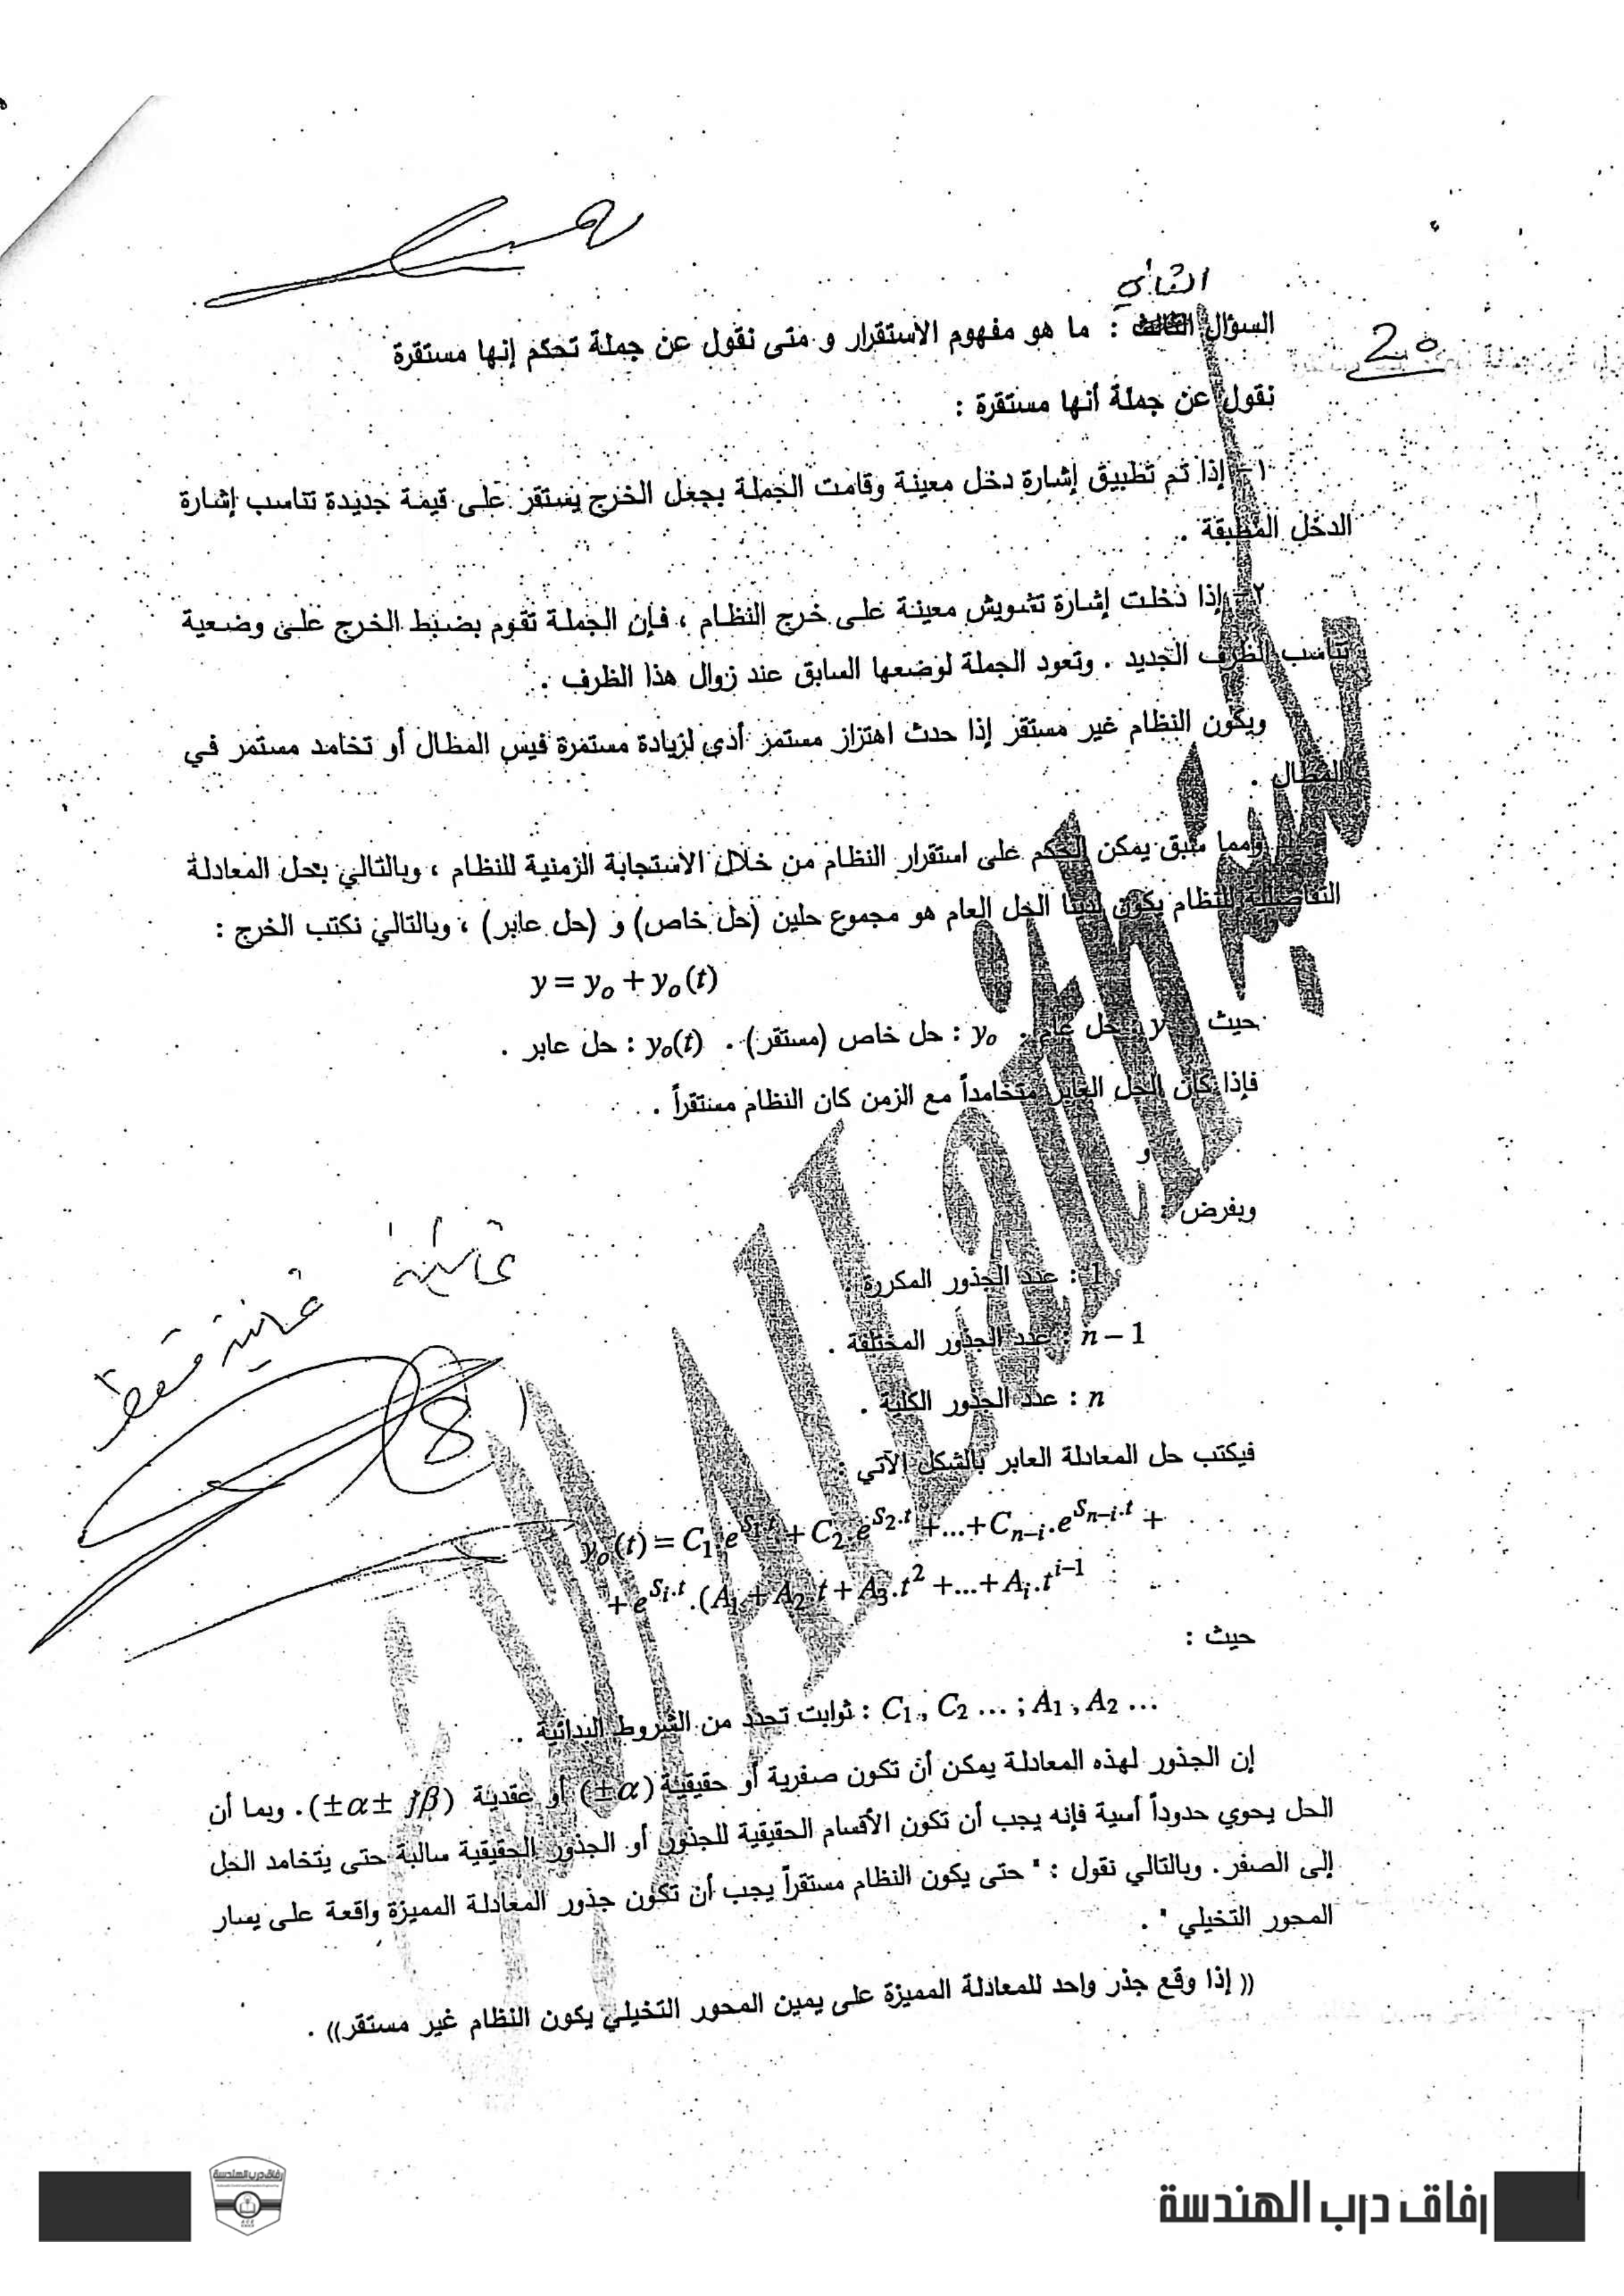 الثاني
السؤال الثالث : ما هو مفهوم الاستقرار و متى نقول عن جملة تحكم إنها مستقرة
20
نقول عن جملة أنها مستقرة :
١- إذا تم تطبيق إشارة دخل معينة وقامت الجملة بجعل الخرج يستقر على قيمة جديدة تناسب إشارة
الدخل المطبقة .
٢- إذا دخلت إشارة تشويش معينة على خرج النظام ، فإن الجملة تقوم بضبط الخرج على وضعية
تناسب الظرف الجديد . وتعود الجملة لوضعها السابق عند زوال هذا الظرف .
ويكون النظام غير مستقر إذا حدث اهتزاز مستمر أدى لزيادة مستمرة فيس المطال أو تخامد مستمر في
المطال .
ومما سبق يمكن الحكم على استقرار النظام من خلال الاستجابة الزمنية للنظام ، وبالتالي بحل المعادلة
التفاضلية للنظام يكون لدينا الحل العام هو مجموع حلين (حل خاص) و (حل عابر) ، وبالتالي نكتب الخرج :
y = y₀ + y₀(t)
حيث y : حل عام . y₀ : حل خاص (مستقر) . y₀(t) : حل عابر .
فإذا كان الحل العابر متخامداً مع الزمن كان النظام مستقراً .
و
وبفرض :
1 : عدد الجذور المكررة .
n − 1 : عدد الجذور المختلفة .
n : عدد الجذور الكلية .
ثمانية
ثمانية فقط
18
فيكتب حل المعادلة العابر بالشكل الآتي :
y₀(t) = C₁.e^{S₁.t} + C₂.e^{S₂.t} +...+ C_{n−i}.e^{S_{n−i}.t} +
+ e^{S_i.t}.(A₁ + A₂.t + A₃.t² +...+ A_i.t^{i−1}
حيث :
C₁ , C₂ ... ; A₁ , A₂ ... : ثوابت تحدد من الشروط البدائية .
إن الجذور لهذه المعادلة يمكن أن تكون صفرية أو حقيقية (±α) أو عقدية (±α ± jβ) . وبما أن
الحل يحوي حدوداً أسية فإنه يجب أن تكون الأقسام الحقيقية للجذور أو الجذور الحقيقية سالبة حتى يتخامد الحل
إلى الصفر . وبالتالي نقول : " حتى يكون النظام مستقراً يجب أن تكون جذور المعادلة المميزة واقعة على يسار
المحور التخيلي " .
(( إذا وقع جذر واحد للمعادلة المميزة على يمين المحور التخيلي يكون النظام غير مستقر)) .
رفاق درب الهندسة